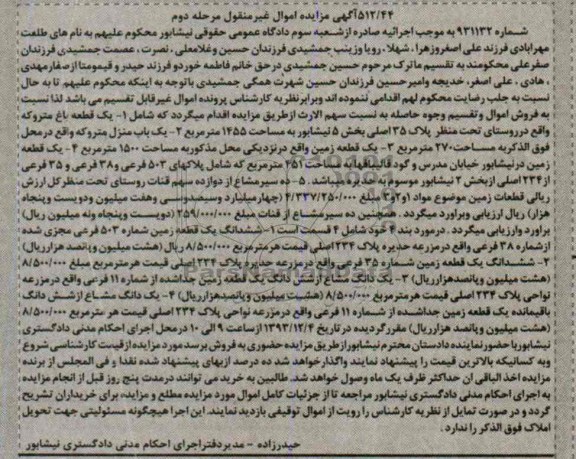 ۵۱۲/۴۴آگهی مزایده اموال غیرمنقول مرحله دوم
شماره ۹۳۱۱۳۲ به موجب اجرائیه صادره ازشعبه سوم دادگاه عمومی حقوقی نیشابور محکوم علیهم به نام های طلعت
مهرابادی فرزند علی اصغروزهرا ، شهلا، رویا وزینب جمشیدی فرزندان حسین وغلامعلی ، نصرت ، عصمت جمشیدی فرزندان
صفرعلی محکومند به تقسیم ماترک مرحوم حسین جمشیدی درحق خانم فاطمه خوردو فرزند حیدر و قیمومتا ازصفارمهدی
، هادی ، علی اصغر، خدیجه وامیرحسین فرزندان حسین شهرت همگی جمشیدی باتوجه به اینکه محکوم علیهم تا به حال
نسبت به جلب رضایت محکوم لهم اقدامی ننموده اند وبرابرنظریه کارشناس پرونده اموال غیرقابل تقسیم می باشد لذا نسبت
به فروش اموال و تقسیم وجوه حاصله به نسبت سهم الارث ازطریق مزایده اقدام میگردد که شامل ۱- یک قطعه باغ متروکه
واقع درروستای تحت منظر پلاک ۳۵ اصلی بخش ۵ نیشابور به مساحت ۱۴۵۵ مترمربع ۲- یک باب منزل متروکه واقع درمحل
فوق الذکربه مساحت ۲۷۰ مترمربع ۳- یک قطعه زمین واقع درنزدیکی محل مذکوربه مساحت ۱۵۰۰ مترمربع ۴- یک قطعه
زمین درنیشابور خیابان مدرس و گود قالبافها به مساحت ۴۵۱ مترمربع که شامل پلاکهای ۵۰۳ فرعی و۳۸ فرعی و ۳۵ فرعی
از۲۳۴ اصلی ازبخش ۲ نیشابور موسوم به حدیره میباشد. ۵- ده سیرمشاع از دوازده سهم قنات روستای تحت منظرکل ارزش
ریالی قطعات زمین موضوع مواد ۱و۲و۳ مبلغ ۴/۳۳۷/۲۵۰/۰۰۰ (چهارمیلیارد وسیصدوسی وهفت میلیون ودویست وپنجاه
هزار) ریال ارزیابی وبراورد میگردد . همچنین ده سیرمشاع از قنات مبلغ ۲۵۹/۰۰۰/۰۰۰ (دویست وپنجاه ونه میلیون ریال)
براورد وارزیابی میگردد . درمورد بند ۴ خود شامل ۴ قسمت است ۱- ششدانگ یک قطعه زمین شماره ۵۰۳ فرعی مجزی شده
ازشماره ۳۸ فرعی واقع درمزرعه حدیره پلاک ۲۳۴ اصلی قیمت هرمترمربع ۸/۵۰۰/۰۰۰ ریال (هشت میلیون وپانصد هزارریال)
۲- ششدانگ یک قطعه زمین شماره ۳۵ فرعی واقع درمزرعه حدیره پلاک ۲۳۴ اصلی قیمت هرمترمربع مبلغ ۸/۵۰۰/۰۰۰
(هشت میلیون وپانصدهزارریال) ۳- یک دانگ مشاع ازشش دانگ یک قطعه زمین جداشده از شماره ۱۱ فرعی واقع درمزرعه
نواحی پلاک ۲۳۴ اصلی قیمت هرمترمربع ۸/۵۰۰/۰۰۰ (هشت میلیون وپانصدهزارریال) ۴- یک دانگ مشاع ازشش دانگ
باقیمانده یک قطعه زمین جداشده از شماره ۱۱ فرعی واقع درمزرعه نواحی پلاک ۲۳۴ اصلی قیمت هر مترمربع ۸/۵۰۰/۰۰۰
(هشت میلیون وپانصد هزارریال) مقررگردیده در تاریخ ۱۳۹۳/۱۲/۴ ازساعت ۹ الی ۱۰ درمحل اجرای احکام مدنی دادگستری
نیشابوربا حضورنماینده دادستان محترم نیشابورازطریق مزایده حضوری به فروش برسد مورد مزایده ازقیمت کارشناسی شروع
وبه کسانیکه بالاترین قیمت را پیشنهاد نمایند واگذارخواهد شد ده درصد ازبهای پیشنهاد شده نقدا و فی المجلس از برنده
مزایده اخذ الباقی ان حداکثر ظرف یک ماه وصول خواهد شد. طالبین به خرید می توانند درمدت پنج روز قبل از انجام مزایده
به اجرای احکام مدنی دادگستری نیشابور مراجعه تا از جزئیات کامل اموال مورد مزایده مطلع و مزایده، برای خریداران تشریح
گردد و در صورت تمایل از نظریه کارشناس را رویت از اموال توقیفی بازدید نمایند. این اجرا هیچگونه مسئولیتی جهت تحویل
املاک فوق الذکر را ندارد .
حیدرزاده - مدیردفتراجرای احکام مدنی دادگستری نیشابور